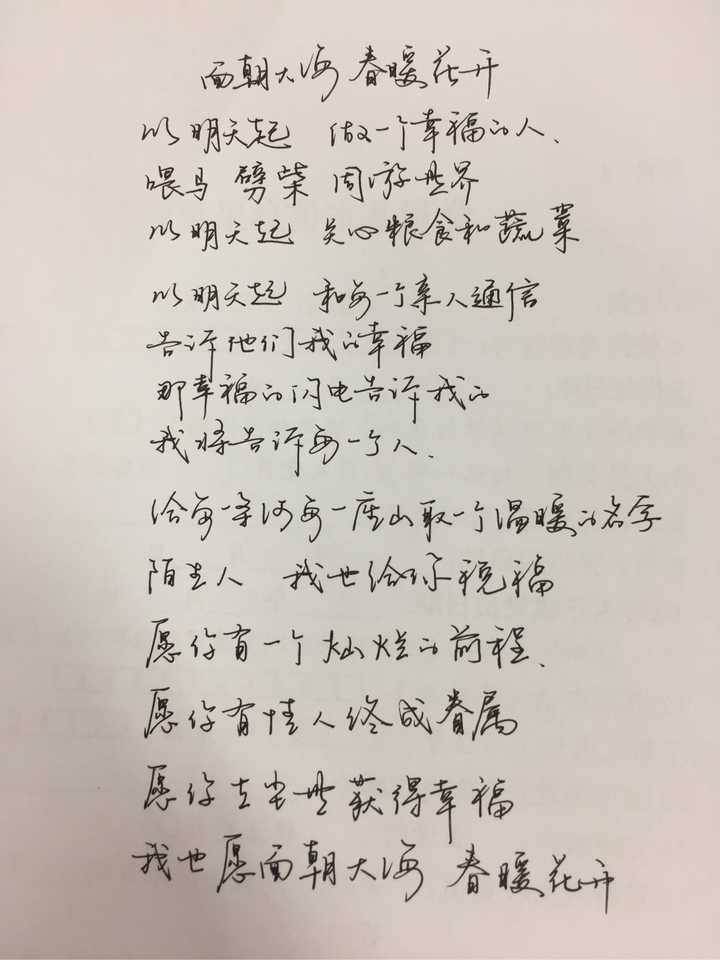 面朝大海 春暖花开
从明天起 做一个幸福的人、
喂马 劈柴 周游世界
从明天起 关心粮食和蔬菜
从明天起 和每一个亲人通信
告诉他们我的幸福
那幸福的闪电告诉我的
我将告诉每一个人.
给每一条河每一座山取一个温暖的名字
陌生人 我也给你祝福
愿你有一个灿烂的前程、
愿你有情人终成眷属
愿你在尘世获得幸福
我也愿面朝大海 春暖花开